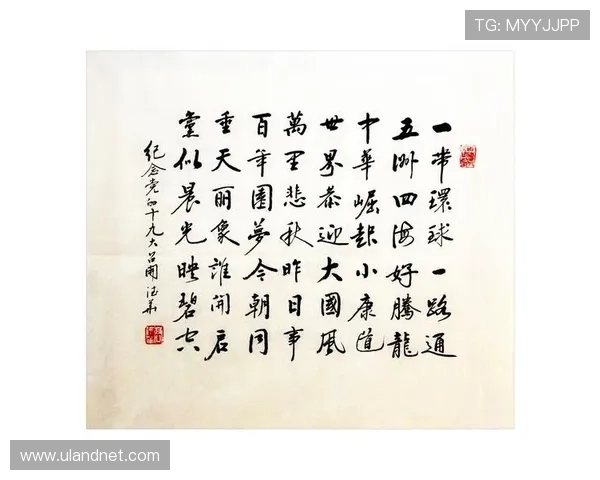 TG: MYYJJPP
一帶環球一路通
五洲四海好騰龍
中華崛起小康道
世界恭迎大國風
萬里悲秋昨日事
百年圓夢今朝同
垂天丽象誰開启
黨似晨光映碧空
纪念党的十九大召開
www.ulandnet.com